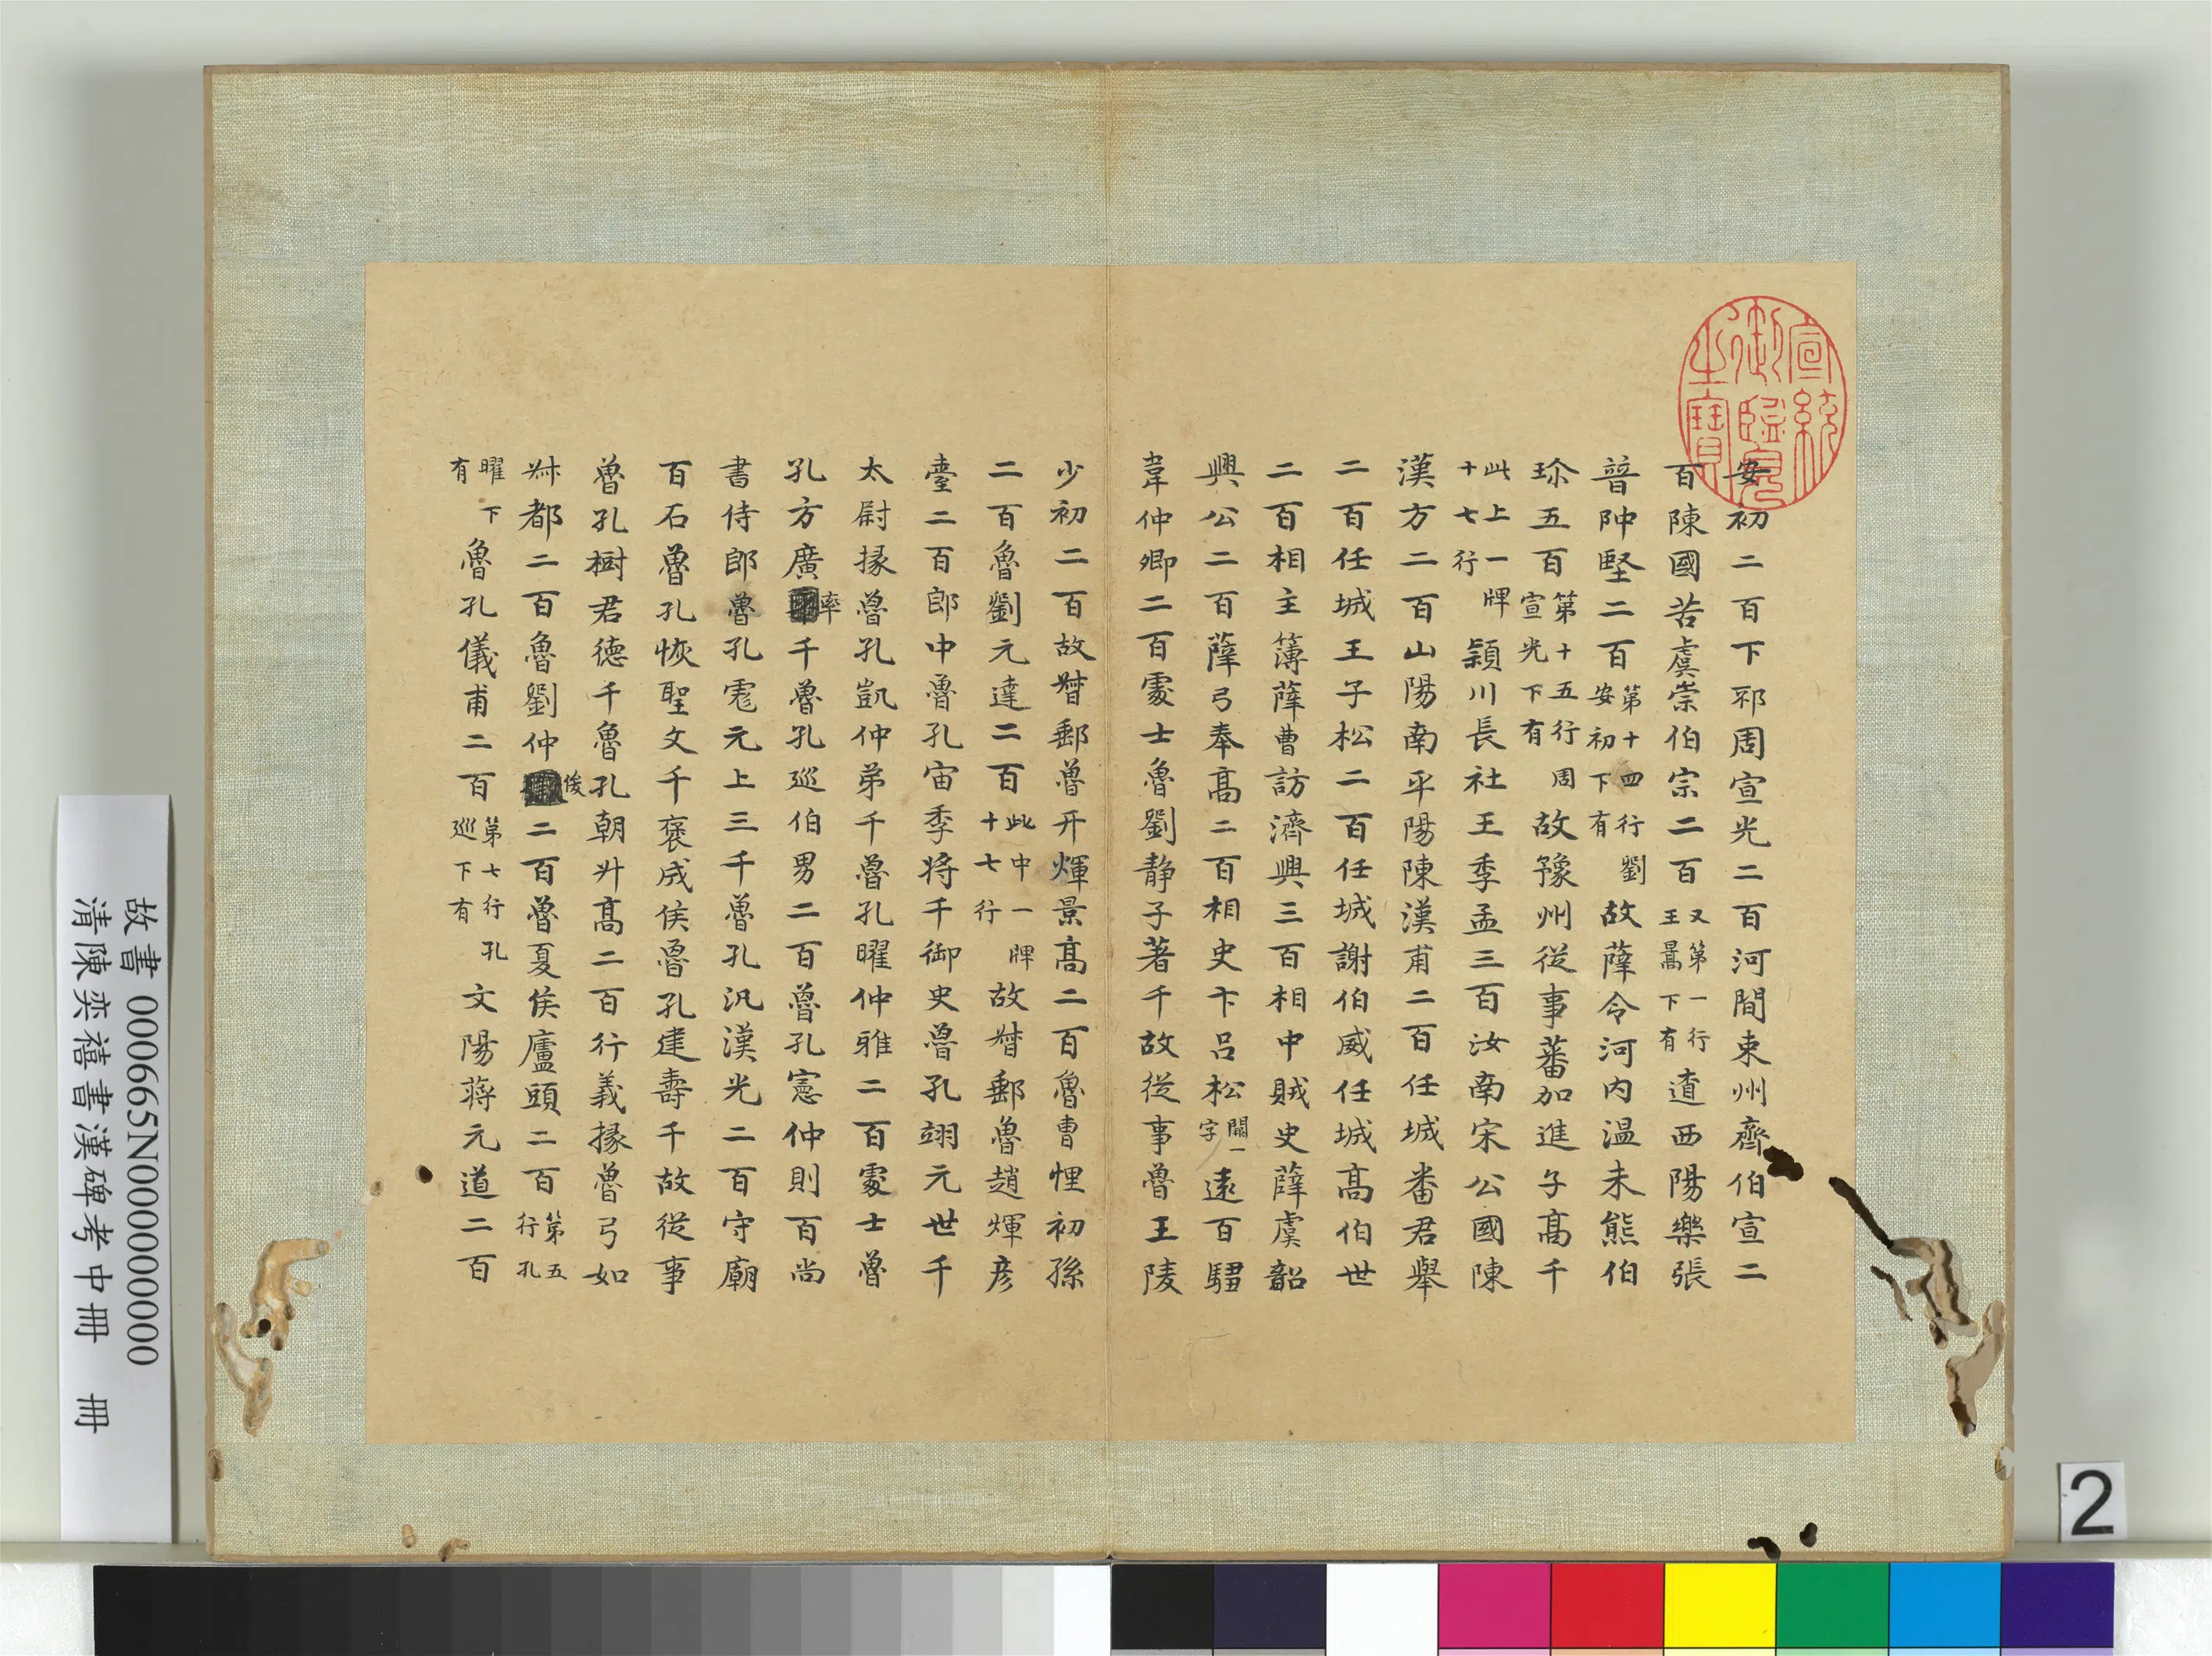 宣統御覽之寶
安初二百下邳周宣光二百河間束州齊伯宣二
百陳國苦虞崇伯宗二百又第一行王暠下有遒西陽樂張
普𨹟堅二百第十四行劉安初下有故薛令河内温朱熊伯
珎五百第十五行周宣光下有故豫州從事蕃加進子高千
此上一牌十七行潁川長社王季孟三百汝南宋公國陳
漢方二百山陽南平陽陳漢甫二百任城番君舉
二百任城王子松二百任城謝伯威任城高伯世
二百相主簿薛曹訪濟興三百相中賊史薛虞韶
興公二百薛弓奉高二百相史卞呂松闕一字遠百騶
韋仲卿二百䖏士魯劉静子著千故從事魯王陵
少初二百故督郵魯开煇景高二百魯曹悝初孫
二百魯劉元達二百此中一牌十七行故督郵魯趙煇彦
臺二百郎中魯孔宙季将千御史魯孔翊元世千
太尉掾魯孔凱仲弟千魯孔曜仲雅二百䖏士魯
孔方廣率千魯孔巡伯男二百魯孔憲仲則百尚
書侍郎魯孔彪元上三千魯孔汎漢光二百守廟
百石魯孔恢聖文千褒成侯魯孔建壽千故從事
魯孔樹君德千魯孔朝升高二百行義掾魯弓如
叔都二百魯劉仲俊二百魯夏侯廬頭二百第五行孔
曜下有魯孔儀甫二百第七行孔巡下有文陽蔣元道二百
故書 000665N000000000
清陳奕禧書漢碑考中冊 冊
2